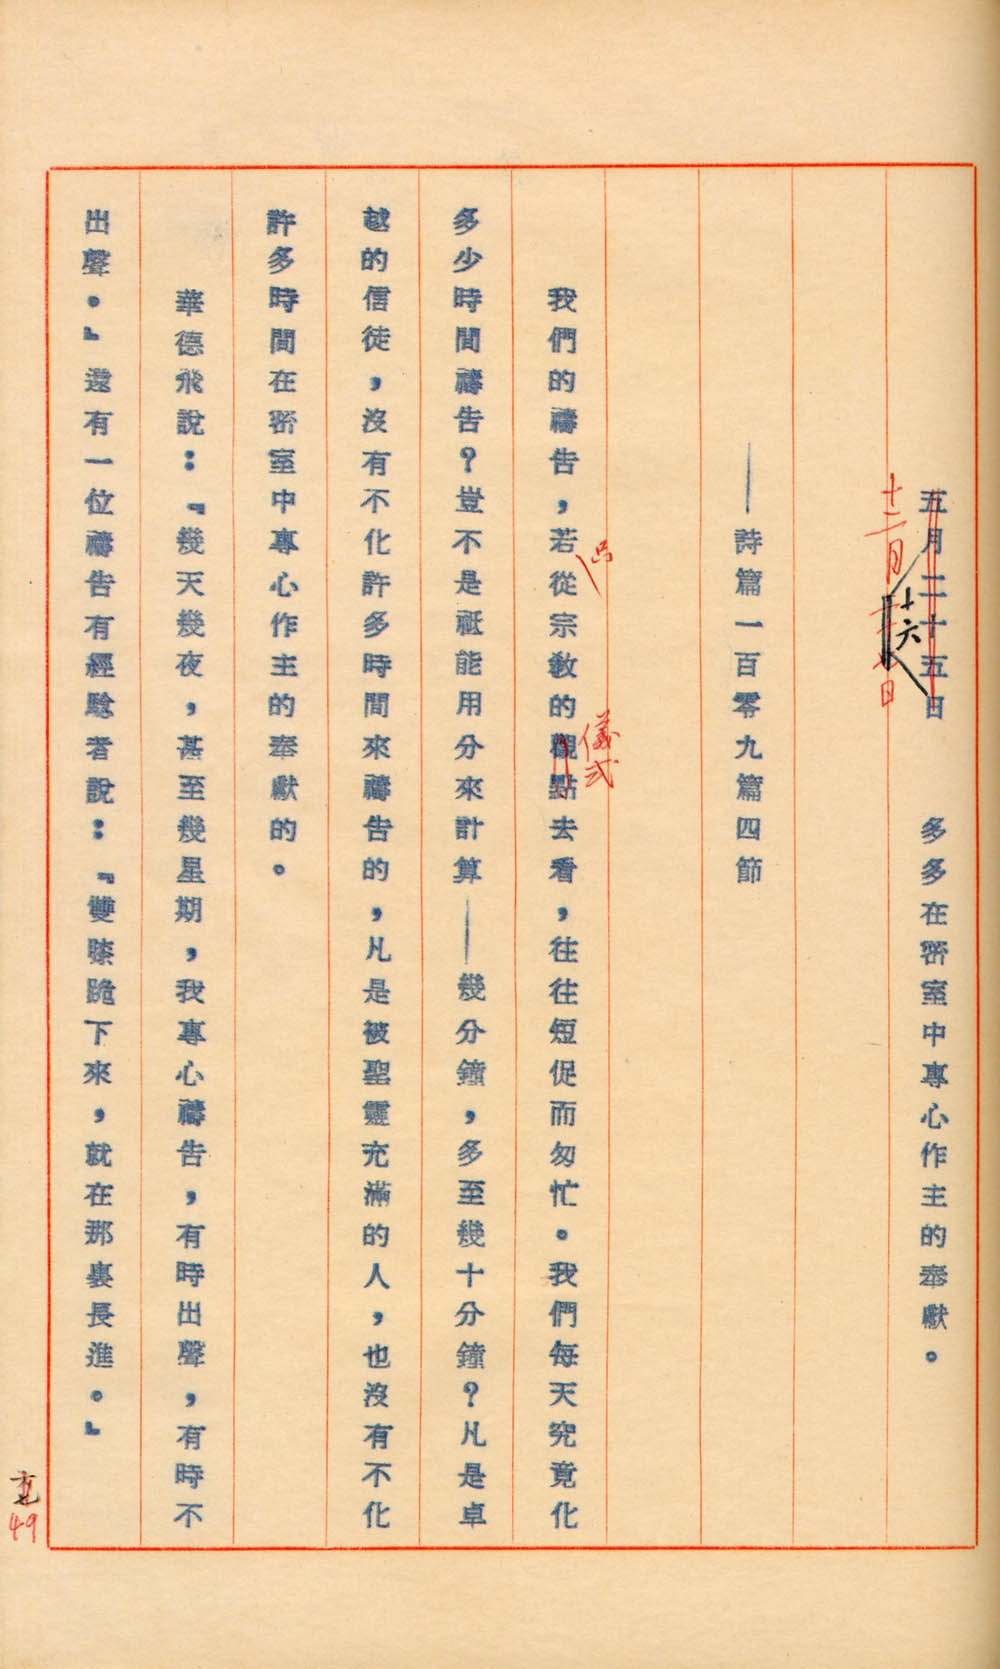 五月二十五日　　多多在密室中專心作主的奉獻。
十二月
十六
日
——詩篇一百零九篇四節
我們的禱告，若從宗教的觀點去看，往往短促而匆忙。我們每天究竟化
只
儀式
多少時間禱告？豈不是祗能用分來計算——幾分鐘，多至幾十分鐘？凡是卓
越的信徒，沒有不化許多時間來禱告的，凡是被聖靈充滿的人，也沒有不化
許多時間在密室中專心作主的奉獻的。
華德飛說：『幾天幾夜，甚至幾星期，我專心禱告，有時出聲，有時不
出聲。』還有一位禱告有經驗者說：『雙膝跪下來，就在那裏長進。』
49